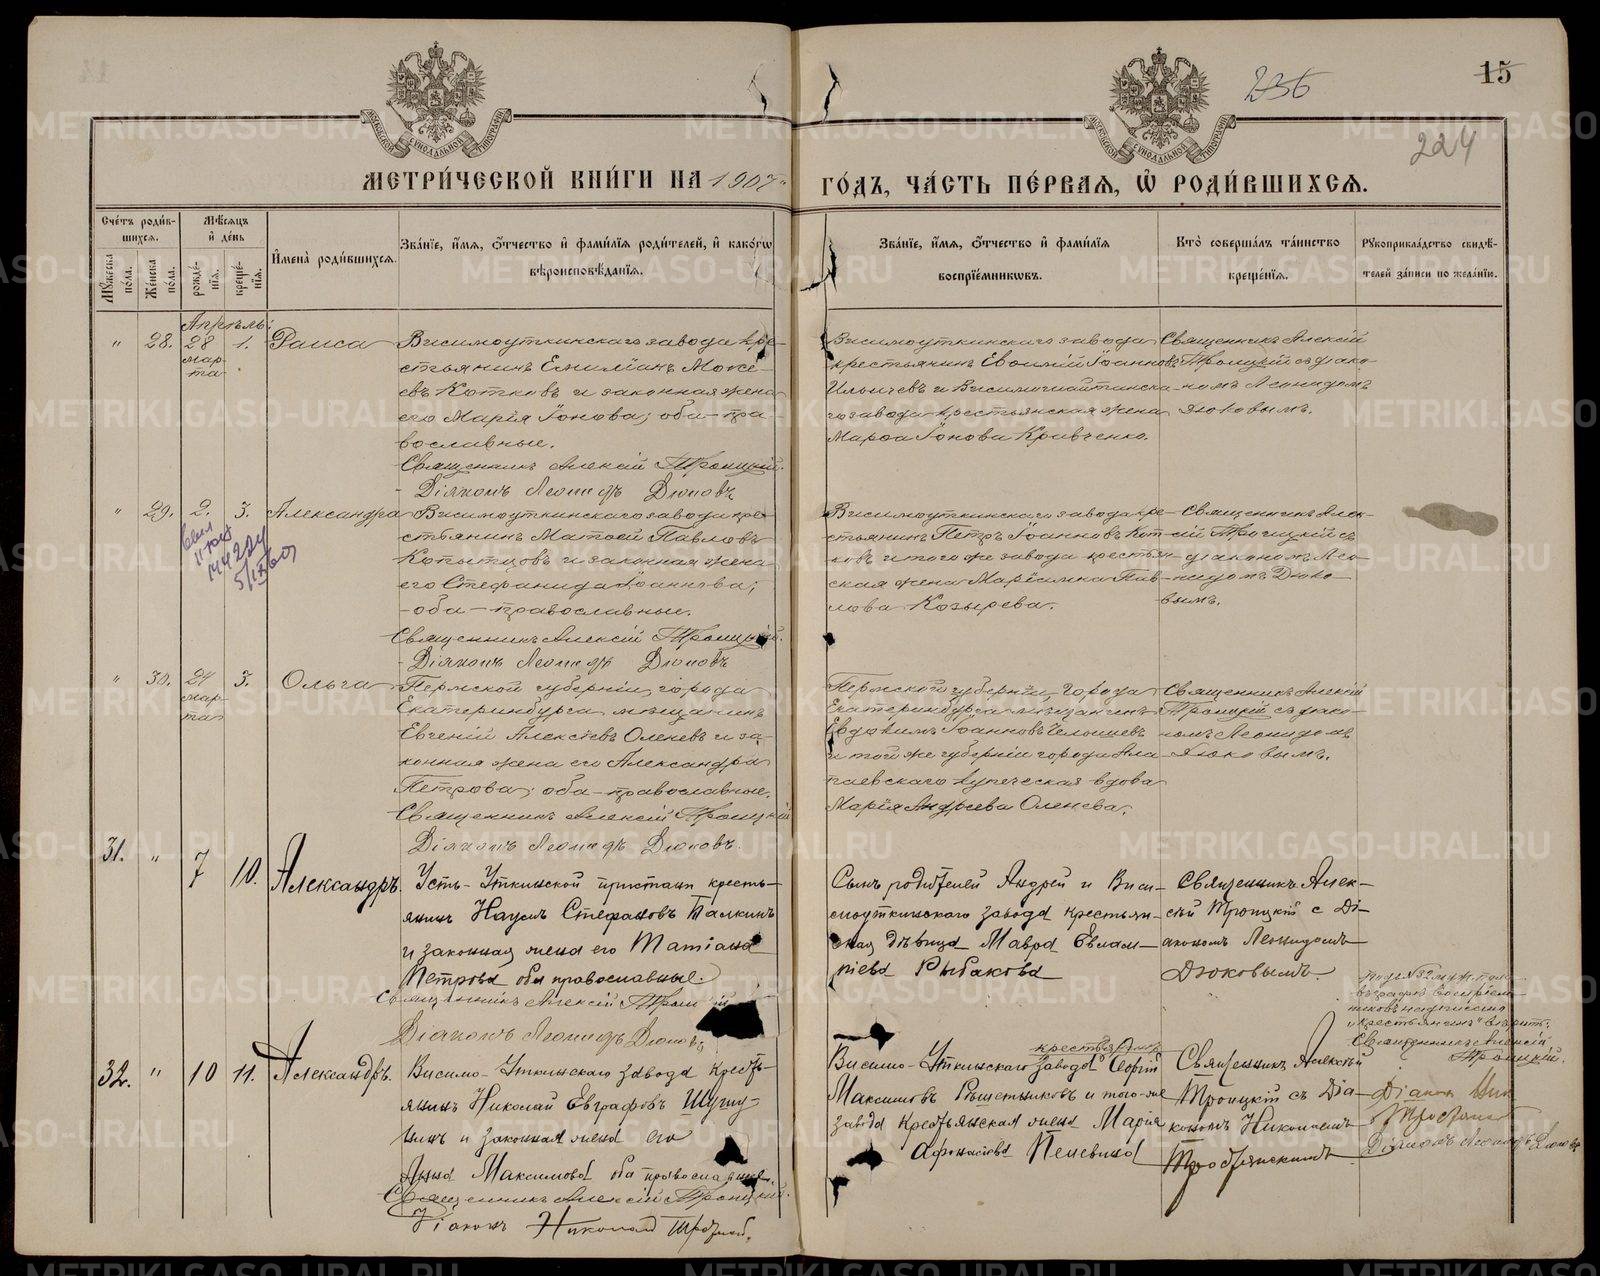 15
236
224
МЕТРИ́ЧЕСКОЙ КНИ́ГИ НА 1907
ГО́ДЪ, ЧА́СТЬ ПЕ́РВАЯ, Ѡ РОДИ́ВШИХСЯ.
Счётъ роди́в-
шихся.
Мѣсяцъ
и де́нь
Мужеска по́ла.
Же́нска по́ла.
рожде́-
нія.
креще́-
нія.
Имена̀ роди́вшихся.
Зва́нїе, и́мя, ѻ҆́тчество и҆ фами́лїя роди́телей, и҆ како́гѡ
вѣроисповѣ́данїя.
Зва́нїе, и́мя, ѻ҆́тчество и҆ фами́лїя
воспрїе́мникѡвъ.
Кто̀ соверша́лъ та́инство
креще́нїя.
Рꙋкоприкла́дство свидѣ́-
телей за́писи по жела́нїю.
Апрѣль:
" 28. 28 1. Раиса
мар-
та
Висимоуткинскаго завода кре-
стьянинъ Емиліанъ Моке-
евъ Котковъ и законная жена
его Марія Іонова; оба пра-
вославные.
Священникъ Алексій Троицкій.
Діаконъ Леонидъ Дюковъ
Висимоуткинскаго завода
крестьянинъ Евѳимій Іоанновъ
Ильичевъ и Висимошайтинска-
го завода крестьянская жена
Марѳа Іонова Кравченко.
Священникъ Алексій
Троицкій съ діако-
номъ Леонидомъ
Дюковымъ.
" 29. 2. 3. Александра
Висимоуткинскаго завода кре-
стьянинъ Матѳей Павловъ
Копытовъ и законная жена
его Стефанида Іоаннова;
оба православные.
Священникъ Алексій Троицкій.
Діаконъ Леонидъ Дюковъ
Висимоуткинскаго завода кре-
стьянинъ Петръ Іоанновъ Кот-
ковъ и того же завода крестьян-
ская жена Маріамна Пав-
лова Козырева.
Священникъ Алек-
сій Троицкій съ
діакономъ Лео-
нидомъ Дюко-
вымъ.
" 30. 24 3. Ольга
мар-
та
Пермской губерніи, города
Екатеринбурга мѣщанинъ
Евгеній Алексѣевъ Оленевъ и за-
конная жена его Александра
Петрова; оба православные.
Священникъ Алексій Троицкій
Діаконъ Леонидъ Дюковъ
Пермской губерніи, города
Екатеринбурга мѣщанинъ
Евдокимъ Іоанновъ
и той же губерніи города Ала-
паевскаго купеческая вдова
Марія Андреева Оленева.
Священникъ Алексій
Троицкій съ діако-
номъ Леонидомъ
Дюковымъ.
31. " 7 10. Александръ.
Усть-Уткинской пристани кресть-
янинъ Наумъ Стефановъ Талкинъ
и законная жена его Татіана
Петрова оба православные.
Священникъ Алексій
Діаконъ Леонидъ Дюковъ
Сынъ родителей Андрей и Виси-
моуткинскаго завода крестьян-
ская дѣвица Мавра Евлам-
піева Рыбакова
Священникъ Алек-
сѣй Троицкій с Ді-
акономъ Леонидомъ
Дюковымъ
32. " 10 11. Александръ.
Висимо-Уткинскаго завода кресть-
янинъ Николай Евграфовъ
и законная жена его
Анна Максимова оба православные.
Священникъ Алексій Троицкій.
Діаконъ Николай
крестьянинъ
Висимо-Уткинскаго завода Георгій
Максимовъ Рѣшетниковъ и того-же
завода крестьянская жена Марія
Афонасіева
Священникъ Алексѣй
Троицкій съ Діа-
кономъ Николаемъ
Въ графѣ воспріем-
никовъ надписано
"крестьянинъ" вѣрить.
Священникъ Алексій
Троицкій.
Діаконъ Ник
Діаконъ Леонидъ Дюковъ